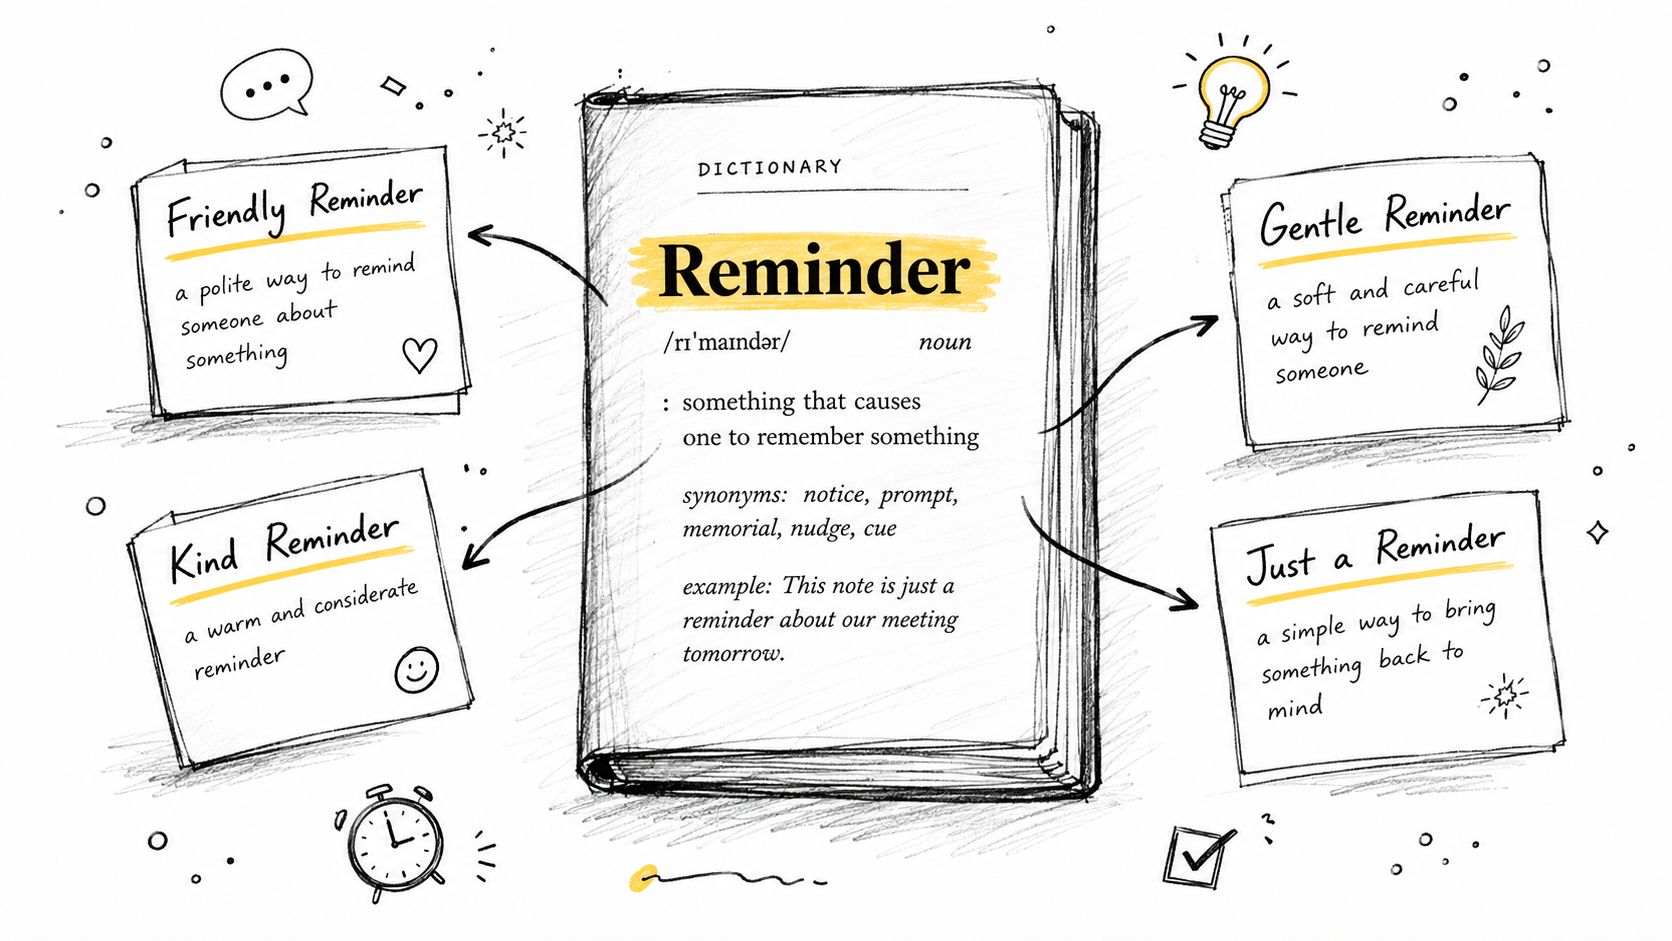 Friendly Reminder
a polite way to remind
someone about
something
Kind Reminder
a warm and considerate
reminder
DICTIONARY
Reminder
/rɪˈmaɪndər/ noun
: something that causes
one to remember something
synonyms: notice, prompt,
memorial, nudge, cue
example: This note is just a
reminder about our meeting
tomorrow.
Gentle Reminder
a soft and careful
way to remind
someone
Just a Reminder
a simple way to bring
something back to
mind